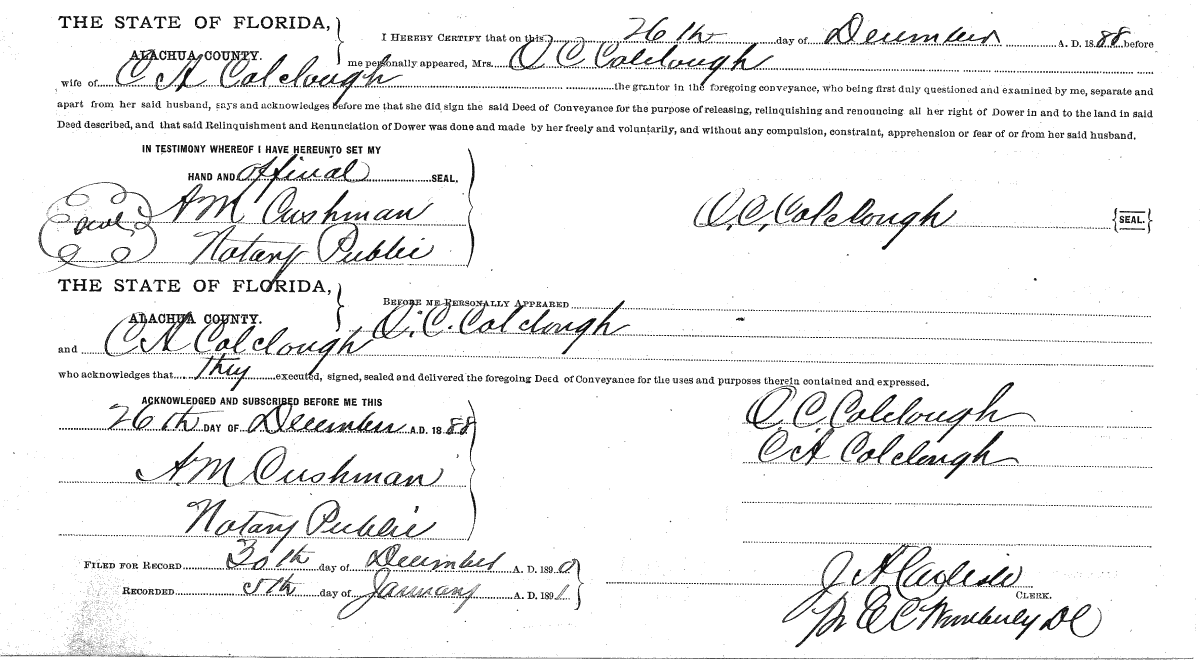 THE STATE OF FLORIDA,
ALACHUA COUNTY.
I HEREBY CERTIFY that on this 26th day of December A. D. 1888 before
me personally appeared, Mrs. O C Colclough
wife of C A Colclough the grantor in the foregoing conveyance, who being first duly questioned and examined by me, separate and
apart from her said husband, says and acknowledges before me that she did sign the said Deed of Conveyance for the purpose of releasing, relinquishing and renouncing all her right of Dower in and to the land in said
Deed described, and that said Relinquishment and Renunciation of Dower was done and made by her freely and voluntarily, and without any compulsion, constraint, apprehension or fear of or from her said husband.
IN TESTIMONY WHEREOF I HAVE HEREUNTO SET MY
HAND AND official SEAL.
Seal AM Cushman
Notary Public
O. C. Colclough {SEAL.}
THE STATE OF FLORIDA,
ALACHUA COUNTY.
BEFORE ME PERSONALLY APPEARED
O. C. Colclough
and C A Colclough
who acknowledges that they executed, signed, sealed and delivered the foregoing Deed of Conveyance for the uses and purposes therein contained and expressed.
ACKNOWLEDGED AND SUBSCRIBED BEFORE ME THIS
26th DAY OF December A.D. 1888
AM Cushman
Notary Public
O C Colclough
C A Colclough
FILED FOR RECORD 30th day of December A. D. 1890
RECORDED 5th day of January A. D. 1891
J A Carlisle
CLERK.
pr E C Wimberley DC